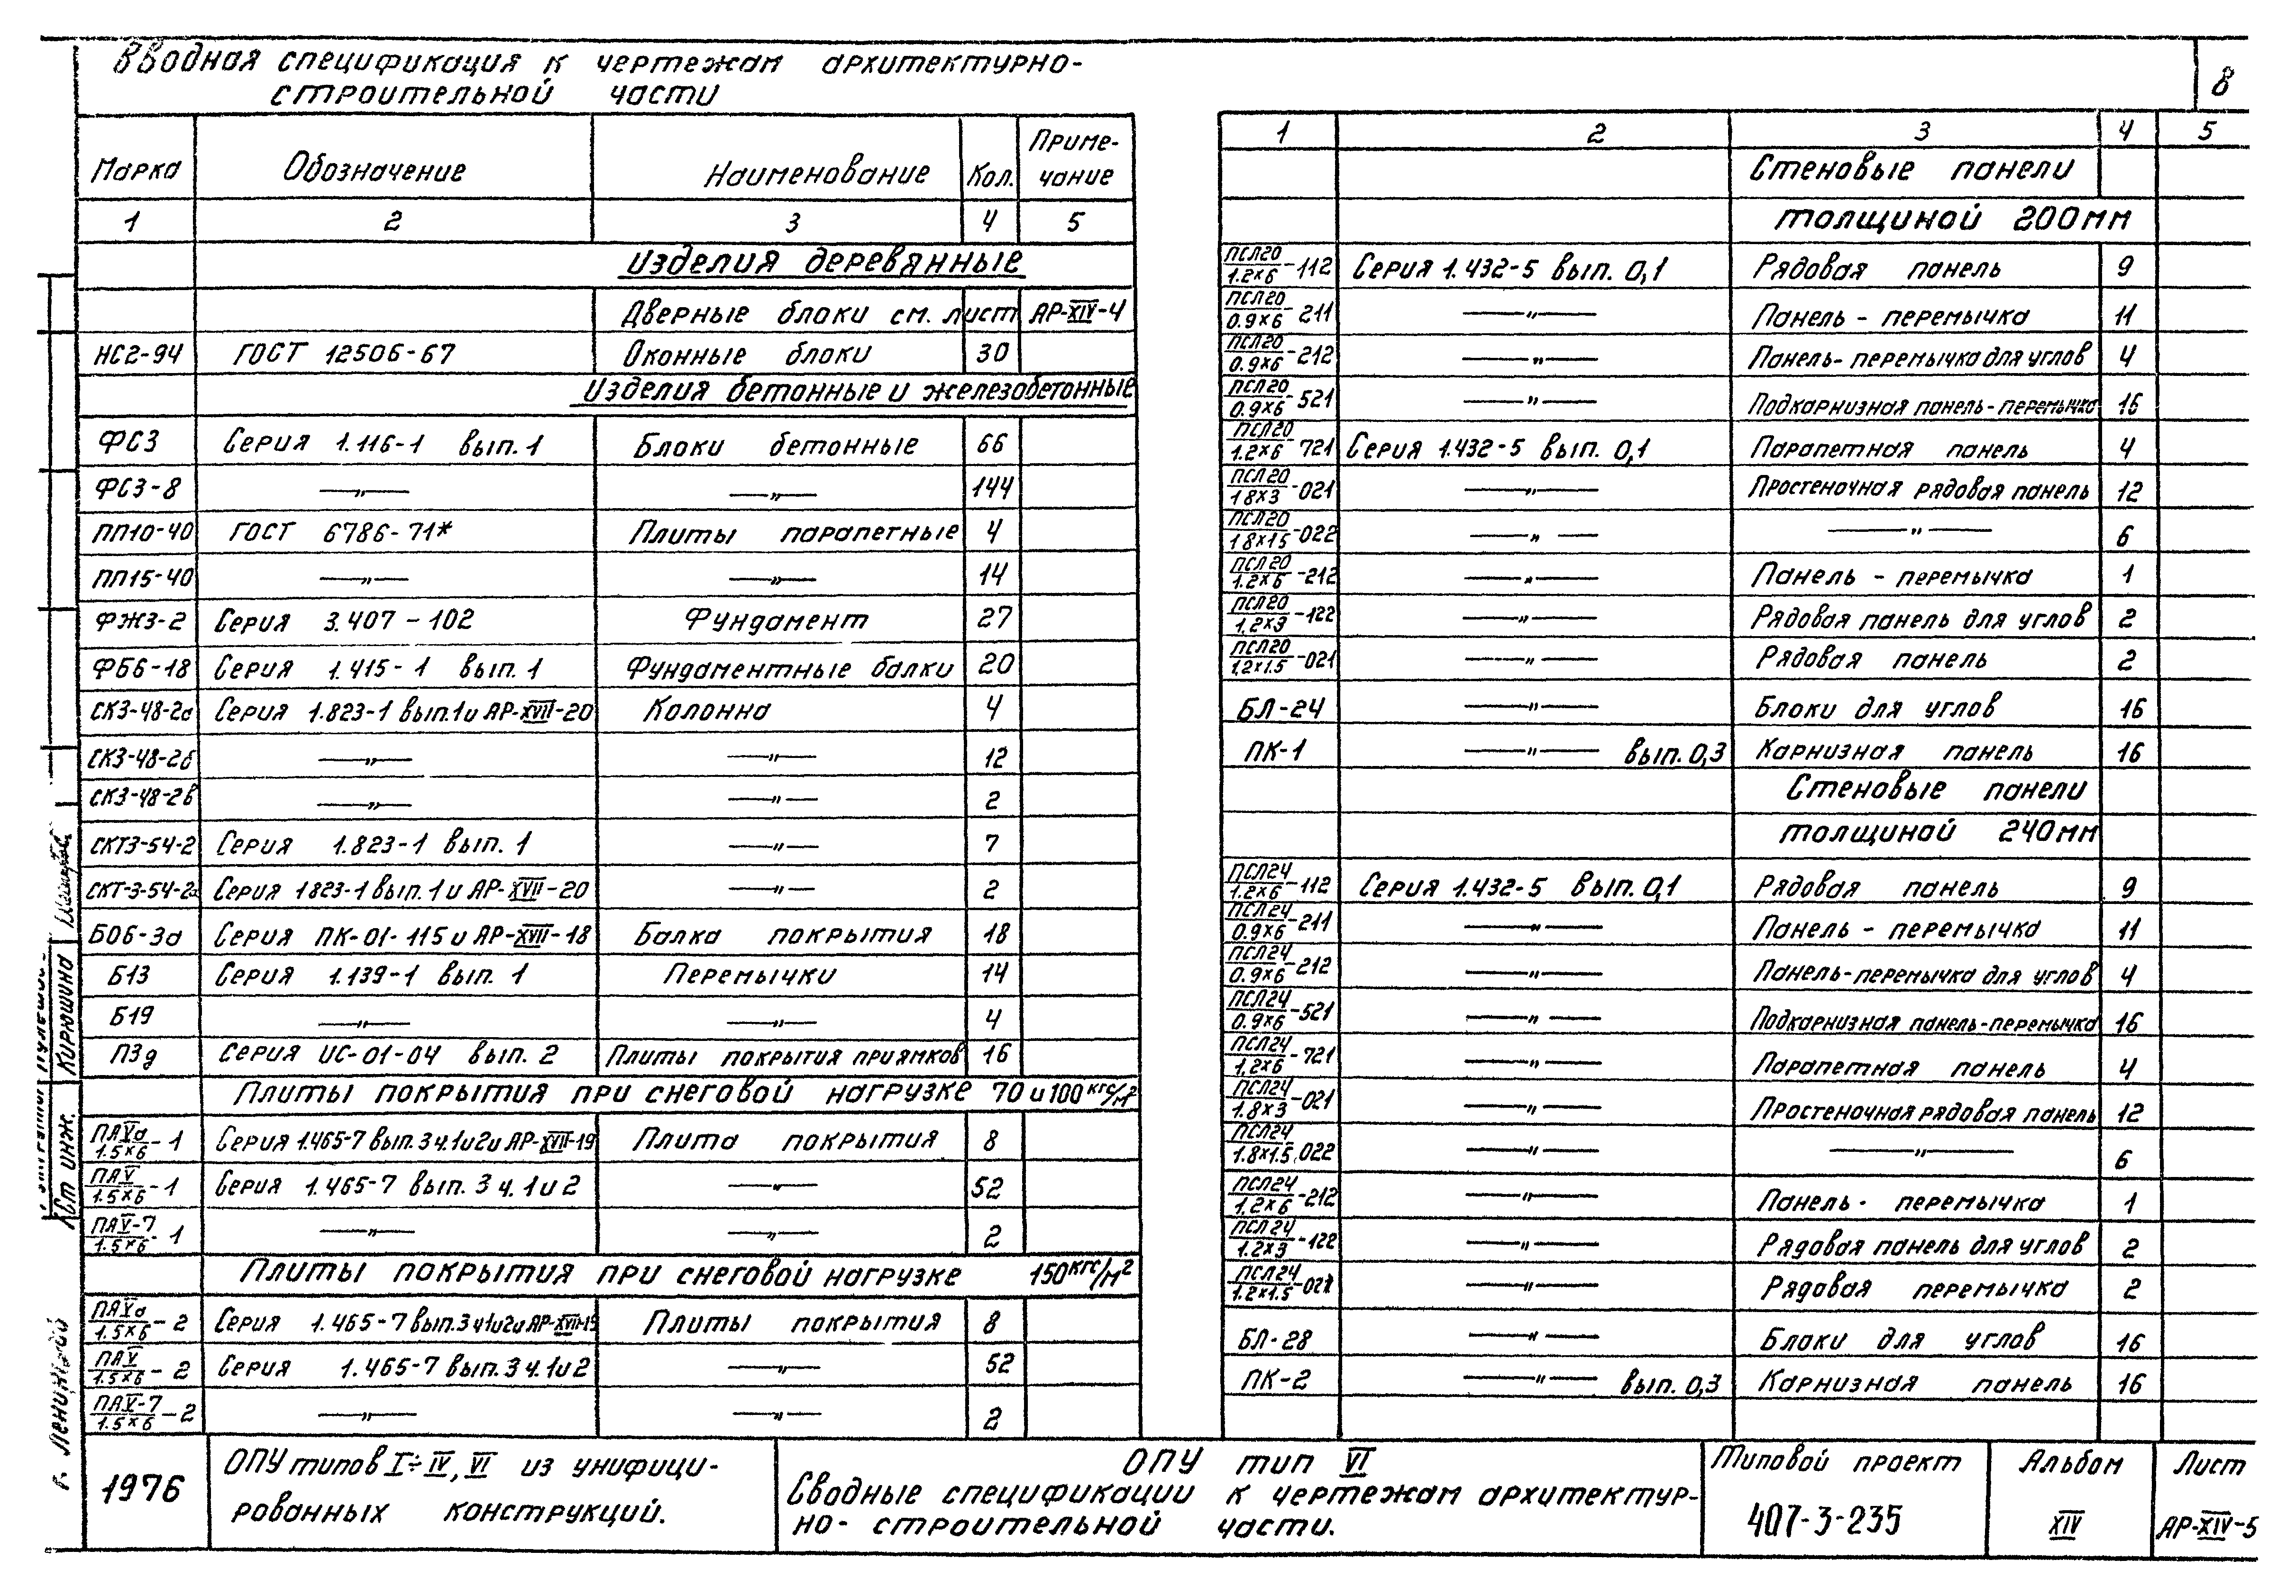 Вводная спецификация к чертежам архитектурно-
строительной части
8
Марка Обозначение Наименование Кол. Приме-чание
1 2 3 4 5
Изделия деревянные
Дверные блоки см. лист АР-XIV-4
НС2-94 ГОСТ 12506-67 Оконные блоки 30
Изделия бетонные и железобетонные
ФС3 Серия 1.116-1 вып. 1 Блоки бетонные 66
ФС3-8 —„— —„— 144
ПП10-40 ГОСТ 6786-71* Плиты парапетные 4
ПП15-40 —„— —„— 14
ФЖ3-2 Серия 3.407-102 Фундамент 27
ФБ6-18 Серия 1.415-1 вып. 1 Фундаментные балки 20
СК3-48-2а Серия 1.823-1 вып.1и АР-XVII-20 Колонна 4
СК3-48-2б —„— —„— 12
СК3-48-2в —„— —„— 2
СКТ3-54-2 Серия 1.823-1 вып. 1 —„— 7
СКТ-3-54-2а Серия 1823-1 вып. 1 и АР-XVII-20 —„— 2
БО6-3а Серия ПК-01-115 и АР-XVII-18 Балка покрытия 18
Б13 Серия 1.139-1 вып. 1 Перемычки 14
Б19 —„— —„— 4
П3д Серия ИС-01-04 вып. 2 Плиты покрытия приямков 16
Плиты покрытия при снеговой нагрузке 70 и 100 кгс/м²
ПАVа/1.5×6-1 Серия 1.465-7 вып. 3 ч.1и2и АР-XVII-19 Плита покрытия 8
ПАV/1.5×6-1 Серия 1.465-7 вып. 3 ч. 1и2 —„— 52
ПАV-7/1.5×6-1 —„— —„— 2
Плиты покрытия при снеговой нагрузке 150 кгс/м²
ПАVа/1.5×6-2 Серия 1.465-7 вып.3 ч1и2и АР-XVII-19 Плиты покрытия 8
ПАV/1.5×6-2 Серия 1.465-7 вып. 3 ч. 1и2 —„— 52
ПАV-7/1.5×6-2 —„— —„— 2
1 2 3 4 5
Стеновые панели
толщиной 200мм
ПСЛ20/1.2×6-112 Серия 1.432-5 вып. 0,1 Рядовая панель 9
ПСЛ20/0.9×6-211 —„— Панель - перемычка 11
ПСЛ20/0.9×6-212 —„— Панель- перемычка для углов 4
ПСЛ20/0.9×6-521 —„— Подкарнизная панель-перемычка 16
ПСЛ20/1.2×6-721 Серия 1.432-5 вып. 0,1 Парапетная панель 4
ПСЛ20/18×3-021 —„— Простеночная рядовая панель 12
ПСЛ20/18×15-022 —„— —„— 6
ПСЛ20/1.2×6-212 —„— Панель - перемычка 1
ПСЛ20/1.2×3-122 —„— Рядовая панель для углов 2
ПСЛ20/1,2×1.5-021 —„— Рядовая панель 2
БЛ-24 —„— Блоки для углов 16
ПК-1 —„— вып. 0,3 Карнизная панель 16
Стеновые панели
толщиной 240мм
ПСЛ24/1.2×6-112 Серия 1.432-5 вып. 0,1 Рядовая панель 9
ПСЛ24/0.9×6-211 —„— Панель - перемычка 11
ПСЛ24/0.9×6-212 —„— Панель-перемычка для углов 4
ПСЛ24/0.9×6-521 —„— Подкарнизная панель-перемычка 16
ПСЛ24/1,2×6-721 —„— Парапетная панель 4
ПСЛ24/1.8×3-021 —„— Простеночная рядовая панель 12
ПСЛ24/1.8×1.5-022 —„— —„— 6
ПСЛ24/1,2×6-212 —„— Панель- перемычка 1
ПСЛ24/1.2×3-122 —„— Рядовая панель для углов 2
ПСЛ24/1.2×1.5-021 —„— Рядовая перемычка 2
БЛ-28 —„— Блоки для углов 16
ПК-2 —„— вып. 0,3 Карнизная панель 16
Кирюшина
инж.
г. Ленинград
1976
ОПУ типов I÷IV, VI из унифици-
рованных конструкций.
ОПУ тип VI
Сводные спецификации к чертежам архитектур-
но- строительной части.
Типовой проект
407-3-235
Альбом
XIV
Лист
АР-XIV-5